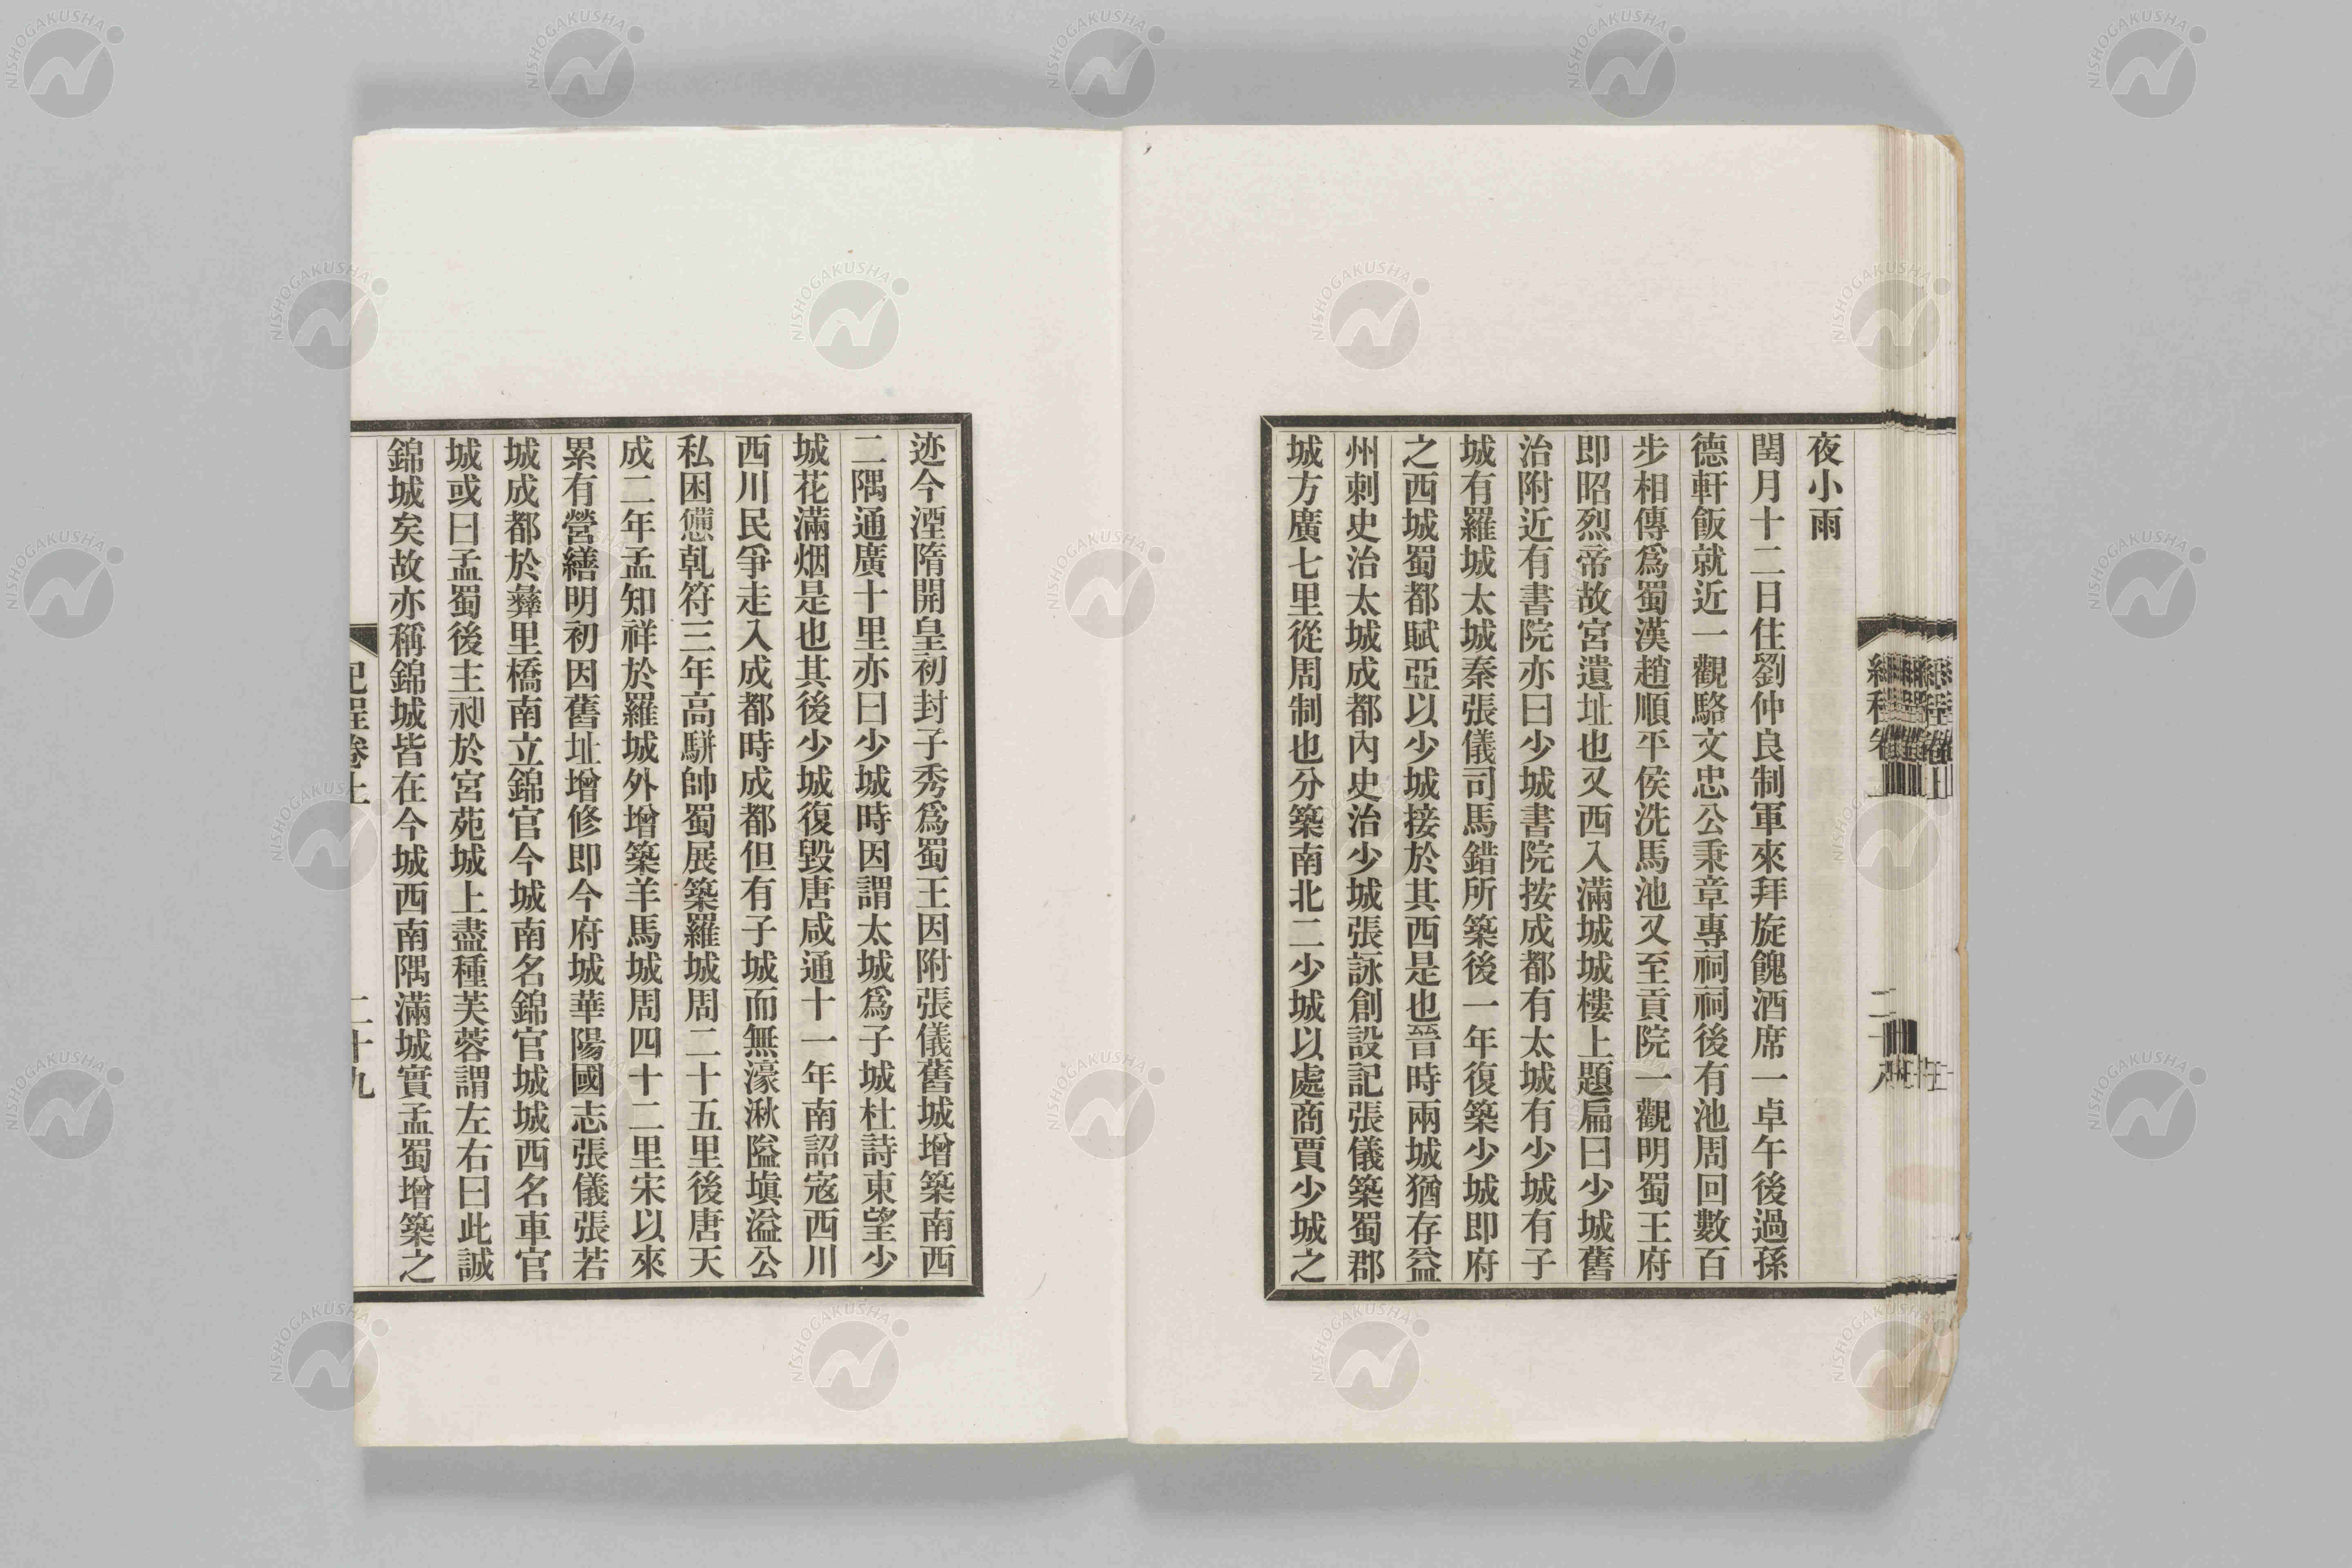 夜小雨
閏月十二日住劉仲良制軍來拜旋餽酒席一卓午後過孫
德軒飯就近一觀駱文忠公秉章專祠祠後有池周回數百
步相傳爲蜀漢趙順平侯洗馬池又至貢院一觀明蜀王府
即昭烈帝故宮遺址也又西入滿城城樓上題扁曰少城舊
治附近有書院亦曰少城書院按成都有太城有少城有子
城有羅城太城秦張儀司馬錯所築後一年復築少城即府
之西城蜀都賦亞以少城接於其西是也晉時兩城猶存益
州刺史治太城成都內史治少城張詠創設記張儀築蜀郡
城方廣七里從周制也分築南北二少城以處商賈少城之
迹今湮隋開皇初封子秀爲蜀王因附張儀舊城增築南西
二隅通廣十里亦曰少城時因謂太城爲子城杜詩東望少
城花滿烟是也其後少城復毀唐咸通十一年南詔寇西川
西川民爭走入成都時成都但有子城而無濠湫隘塡溢公
私困憊乹符三年高駢帥蜀展築羅城周二十五里後唐天
成二年孟知祥於羅城外增築羊馬城周四十二里宋以來
累有營繕明初因舊址增修即今府城華陽國志張儀張若
城成都於彝里橋南立錦官今城南名錦官城城西名車官
城或曰孟蜀後主昶於宮苑城上盡種芙蓉謂左右曰此誠
錦城矣故亦稱錦城皆在今城西南隅滿城實孟蜀增築之
紀程卷上
二十九